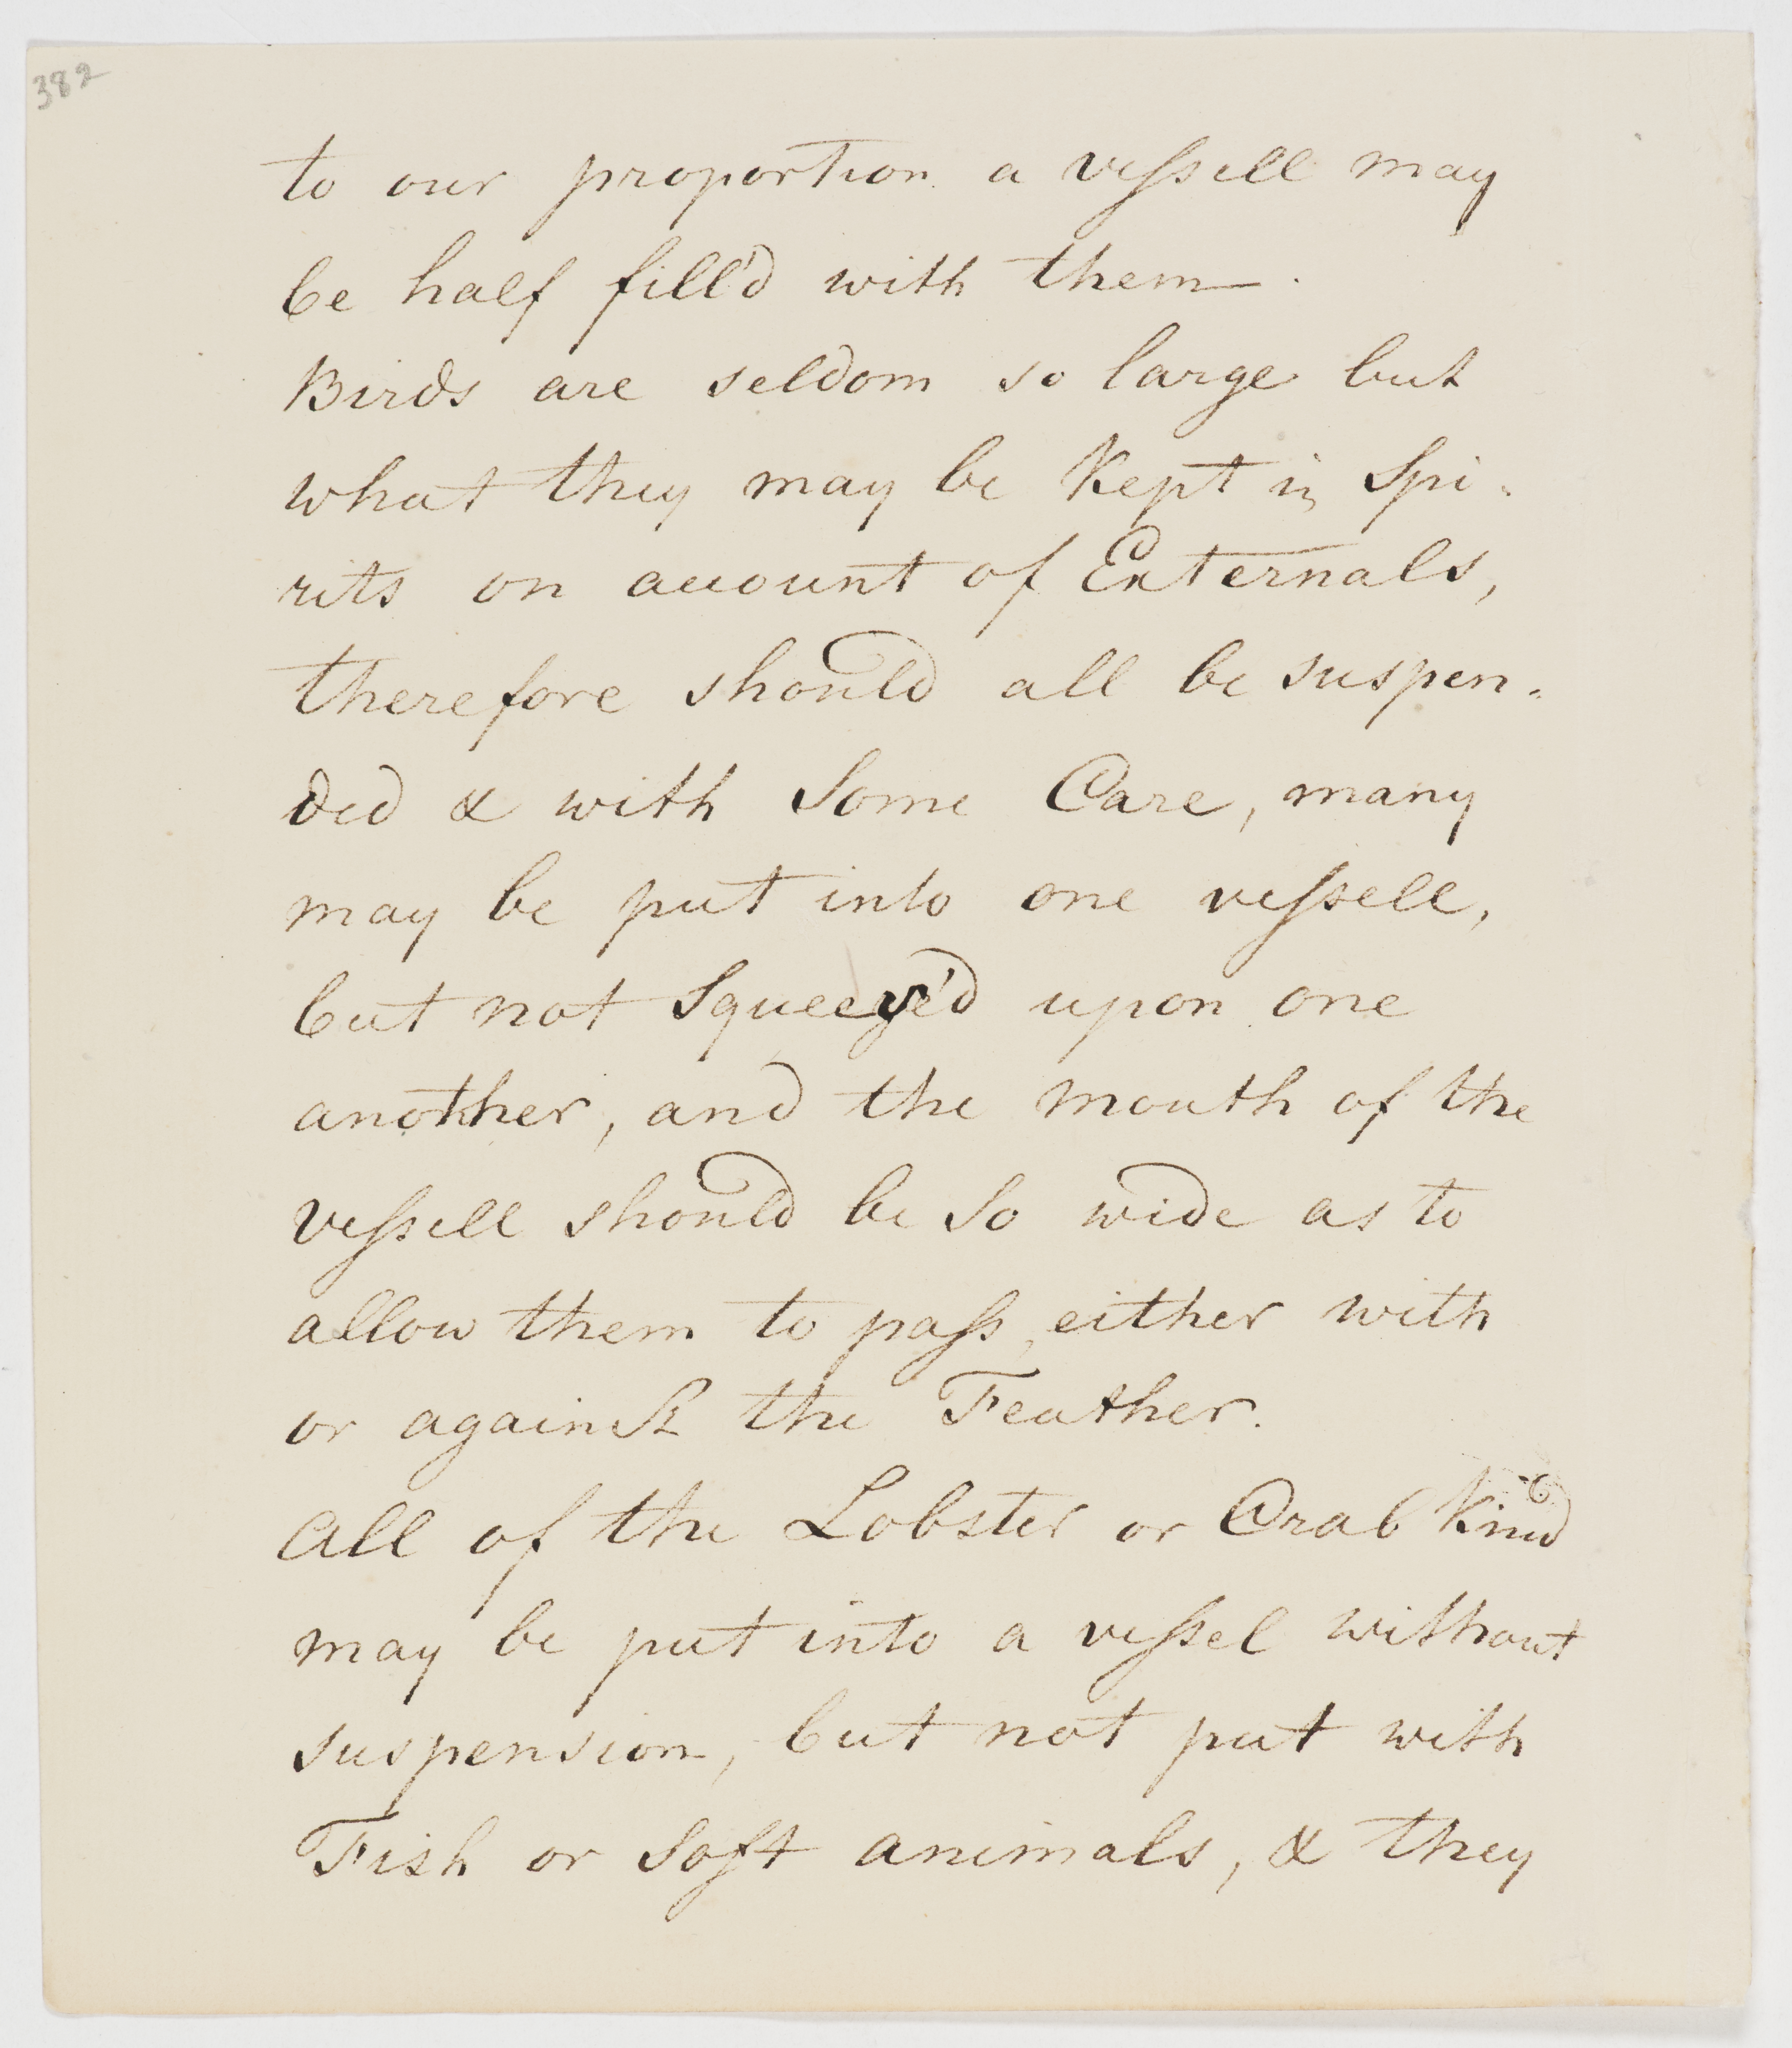 382
to our proportion a vessell may
be half fill'd with them.
Birds are seldom so large but
what they may be Kept in Spi-
rits on account of Externals,
therefore should all be suspen-
ded & with Some Care, many
may be put into one vessell,
but not Squeeze'd upon one
another, and the mouth of the
vessell should be So wide as to
allow them to pass, either with
or against the Feather.
All of the Lobster or Crab Kind
may be put into a vessel without
suspension, but not put with
Fish or Soft animals, & they